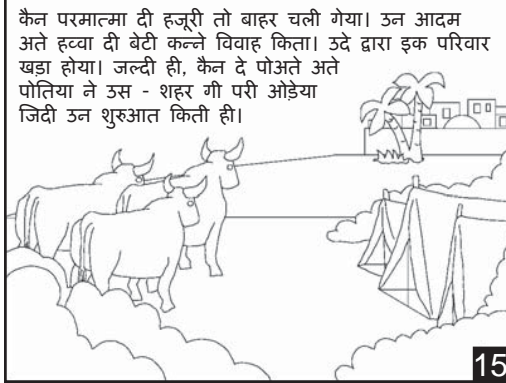 कैन परमात्मा दी हजूरी तो बाहर चली गेया। उन आदम
अते हव्वा दी बेटी कन्ने विवाह किता। उदे द्वारा इक परिवार
खड़ा होया। जल्दी ही, कैन दे पोअते अते
पोतिया ने उस - शहर गी परी ओड़ेया
जिदी उन शुरुआत किती ही।
15